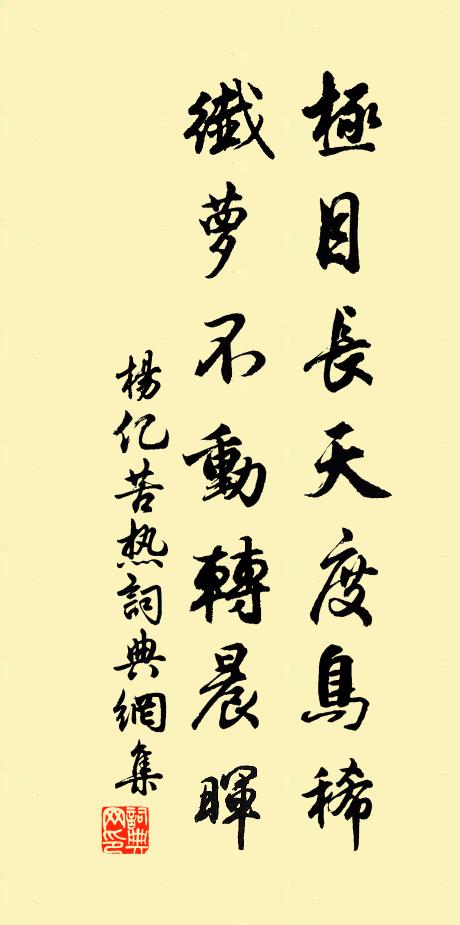 極目長天度鳥稀
纖萝不動轉晨暉
楊亿苦热詞典網集
詞典网印